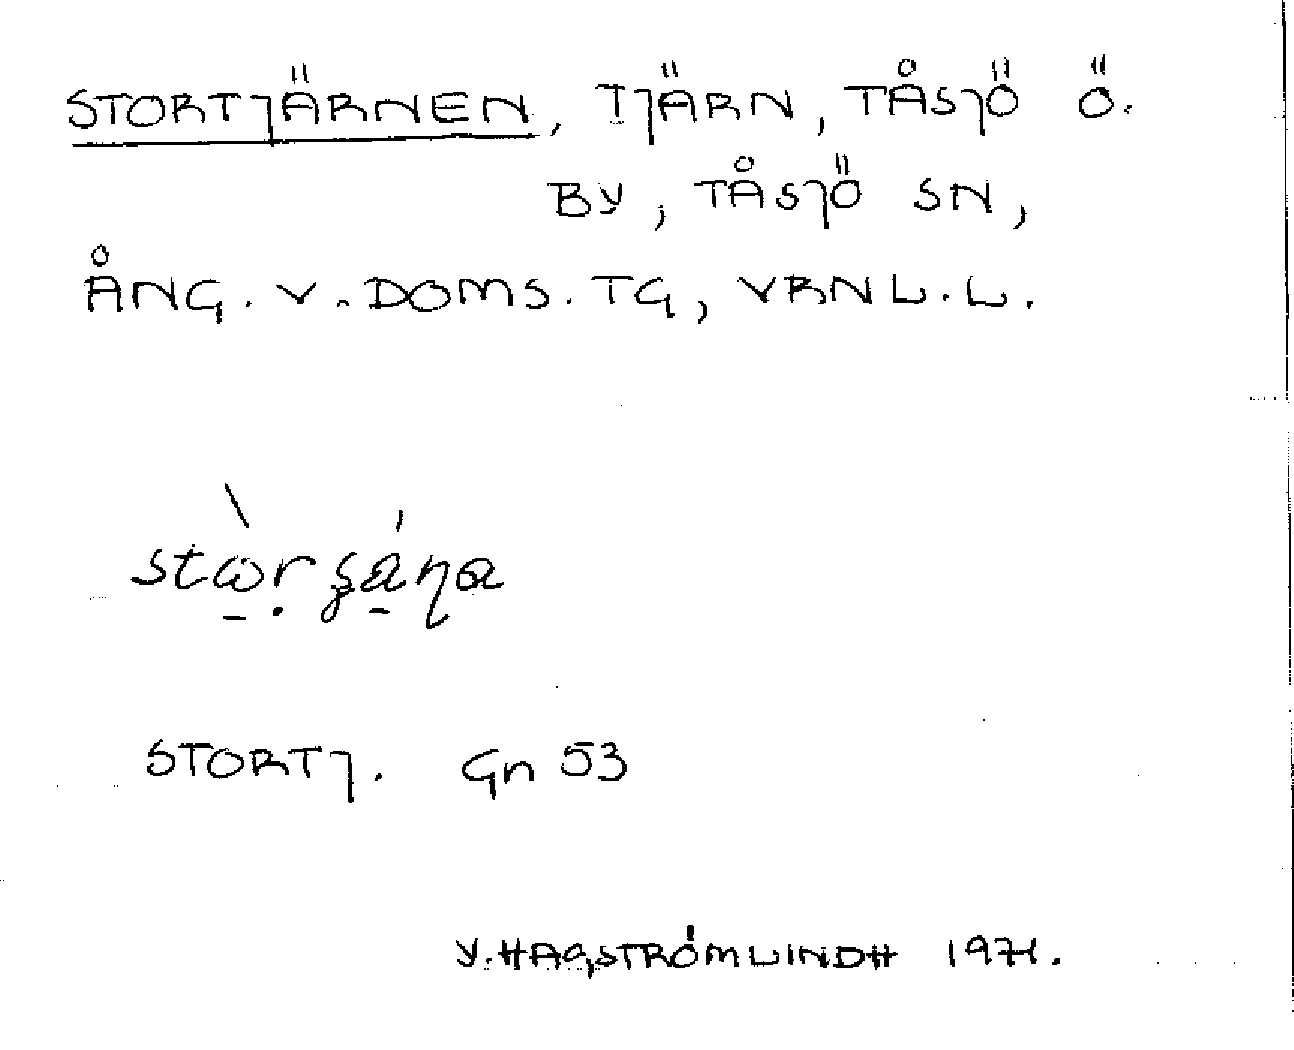 STORTJÄRNEN, TJÄRN, TÅSJÖ Ö.
BY, TÅSJÖ SN,
ÅNG. V. DOMS. TG, VRNL. L.
STORTJ. Gn 53
Y. HAGSTRÖMLINDH 1971.